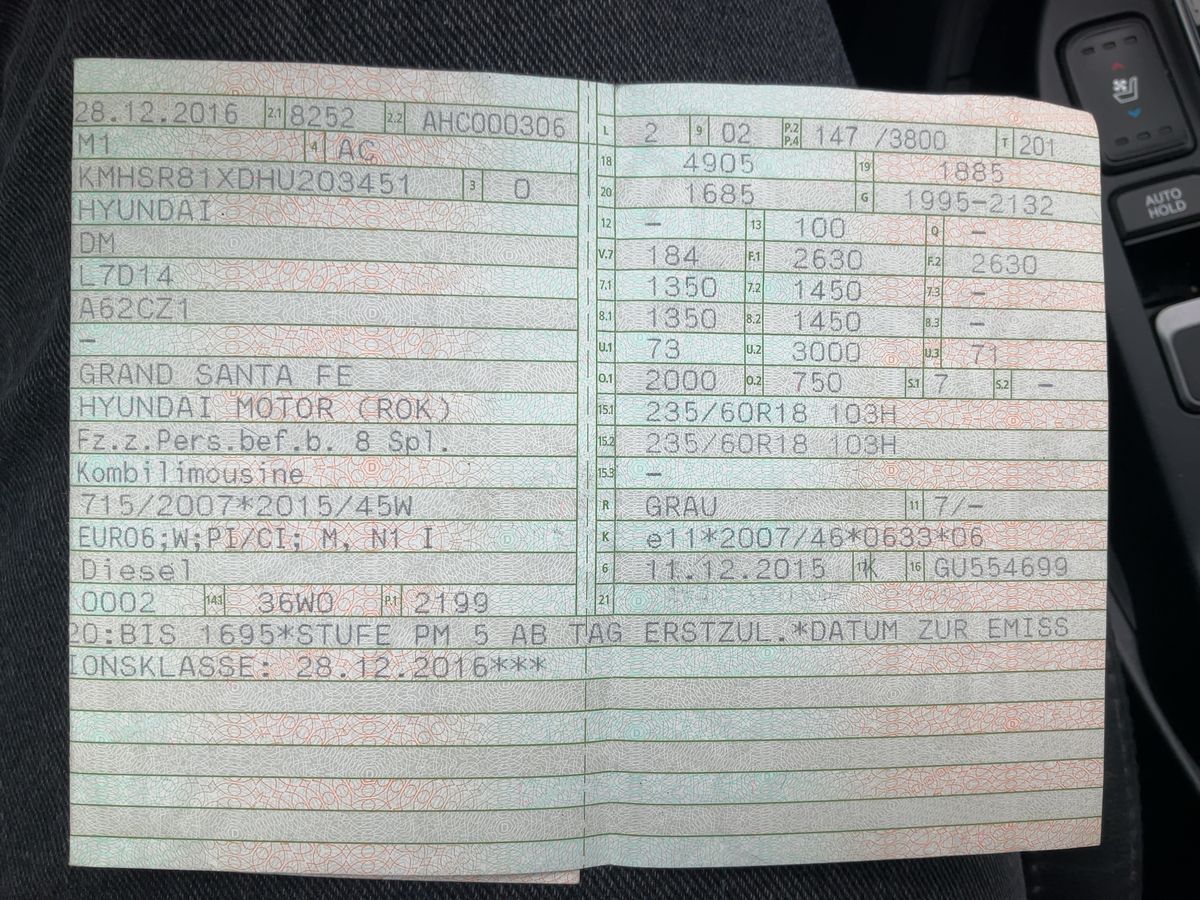 28.12.2016 2.1 8252 2.2 AHC000306
M1 4 AC
KMHSR81XDHU203451 3 0
HYUNDAI
DM
L7D14
A62CZ1
-
GRAND SANTA FE
HYUNDAI MOTOR (ROK)
Fz.z.Pers.bef.b. 8 Spl.
Kombilimousine
715/2007*2015/45W
EURO6;W;PI/CI; M, N1 I
Diesel
0002 14.1 36W0 P.1 2199
L 2 9 02 P.2 P.4 147 /3800 T 201
18 4905 19 1885
20 1685 G 1995-2132
12 - 13 100 Q -
V.7 184 F.1 2630 F.2 2630
7.1 1350 7.2 1450 7.3 -
8.1 1350 8.2 1450 8.3 -
U.1 73 U.2 3000 U.3 71
O.1 2000 O.2 750 S.1 7 S.2 -
15.1 235/60R18 103H
15.2 235/60R18 103H
15.3 -
R GRAU 11 7/-
K e11*2007/46*0633*06
6 11.12.2015 17 K 16 GU554699
21
20:BIS 1695*STUFE PM 5 AB TAG ERSTZUL.*DATUM ZUR EMISS
IONSKLASSE: 28.12.2016***
AUTO
HOLD